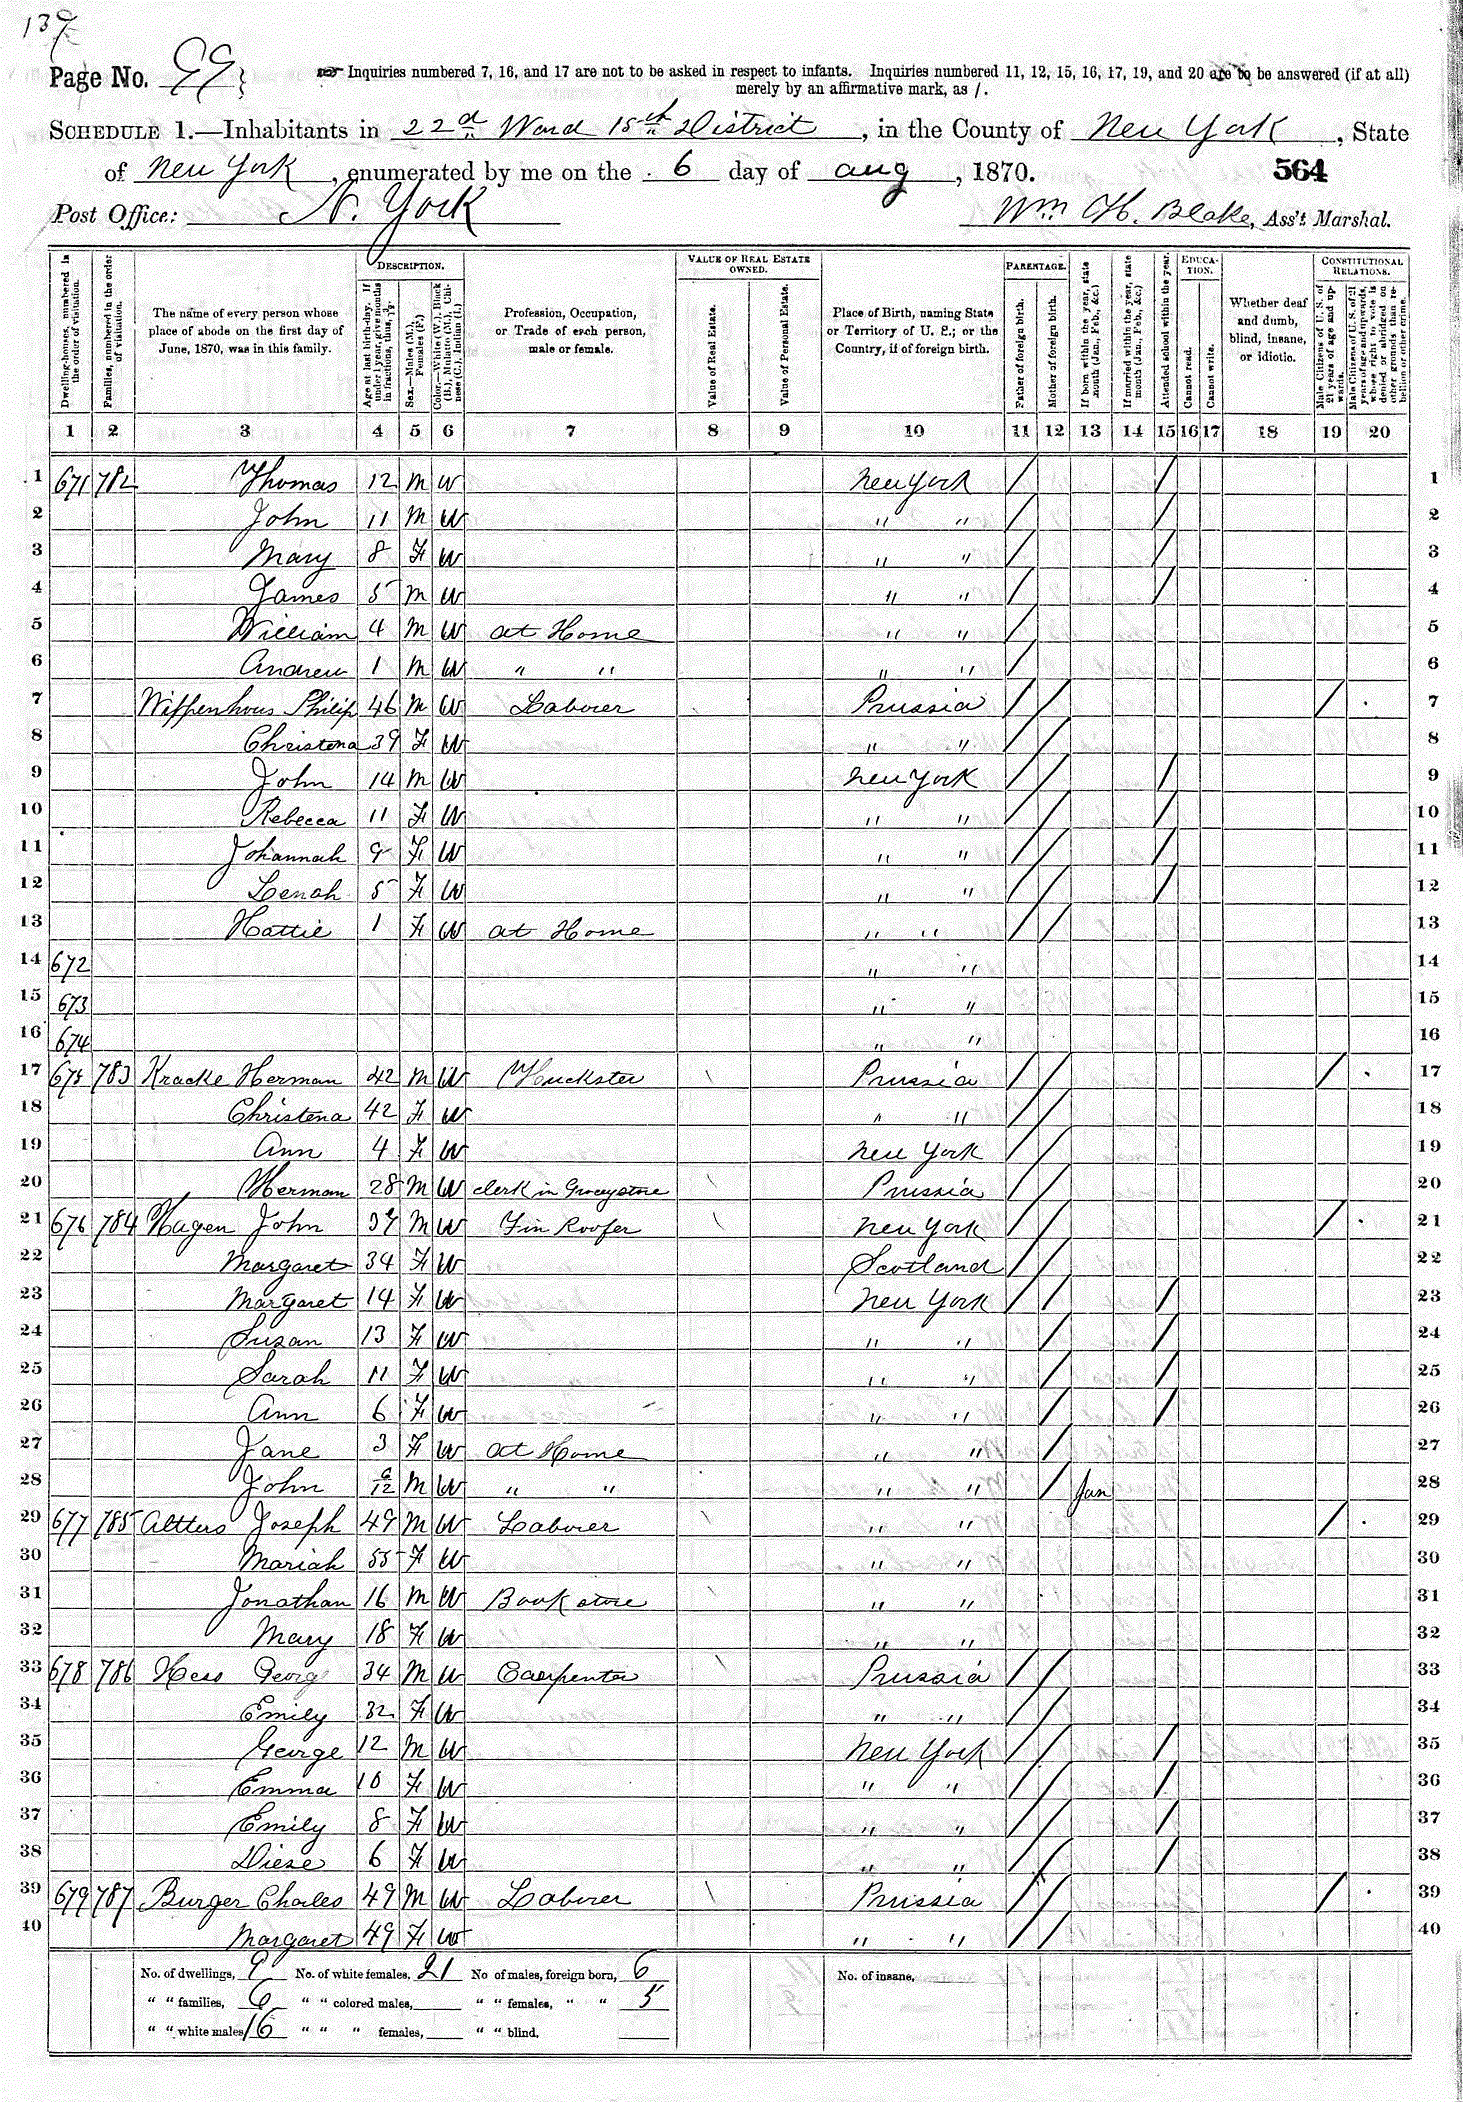 139
Page No. 99
Inquiries numbered 7, 16, and 17 are not to be asked in respect to infants. Inquiries numbered 11, 12, 15, 16, 17, 19, and 20 are to be answered (if at all)
merely by an affirmative mark, as /.
SCHEDULE 1.—Inhabitants in 22d Ward 15th District, in the County of New York, State
of New York, enumerated by me on the 6 day of aug, 1870. 564
Post Office: N. York Wm H. Blake, Ass't Marshal.
DESCRIPTION. VALUE OF REAL ESTATE OWNED. PARENTAGE. EDUCATION. CONSTITUTIONAL RELATIONS.
Dwelling-houses, numbered in the order of visitation.
Families, numbered in the order of visitation.
The name of every person whose place of abode on the first day of June, 1870, was in this family.
Age at last birth-day. If under 1 year, give months in fractions, thus, 3/12.
Sex.—Males (M.), Females (F.)
Color.—White (W.), Black (B.), Mulatto (M.), Chinese (C.), Indian (I.)
Profession, Occupation, or Trade of each person, male or female.
Value of Real Estate.
Value of Personal Estate.
Place of Birth, naming State or Territory of U. S.; or the Country, if of foreign birth.
Father of foreign birth.
Mother of foreign birth.
If born within the year, state month (Jan., Feb., &c.)
If married within the year, state month (Jan., Feb., &c.)
Attended school within the year.
Cannot read.
Cannot write.
Whether deaf and dumb, blind, insane, or idiotic.
Male Citizens of U. S. of 21 years of age and upwards.
Male Citizens of U. S. of 21 years of age and upwards, whose right to vote is denied or abridged on other grounds than rebellion or other crime.
1 2 3 4 5 6 7 8 9 10 11 12 13 14 15 16 17 18 19 20
1 671 782 Thomas 12 M W New York / / 1
2 John 11 M W " " / / 2
3 Mary 8 F W " " / / 3
4 James 5 M W " " / / 4
5 William 4 M W at Home " " / 5
6 Andrew 1 M W " " " " / 6
7 Wippenhous Philip 46 M W Laborer Prussia / / / 7
8 Christena 39 F W " " / / 8
9 John 14 M W New York / / / 9
10 Rebecca 11 F W " " / / / 10
11 Johannah 9 F W " " / / / 11
12 Lenah 5 F W " " / / / 12
13 Hattie 1 F W at Home " " / / 13
14 672 " " 14
15 673 " " 15
16 674 " " 16
17 675 783 Kracke Herman 42 M W Huckster Prussia / / / 17
18 Christena 42 F W " " / / 18
19 Ann 4 F W New York / / 19
20 Herman 28 M W Clerk in Grocystore Prussia / / 20
21 676 784 Hagen John 39 M W Tin Roofer New York / / / 21
22 Margaret 34 F W Scotland / / 22
23 Margaret 14 F W New York / / / 23
24 Susan 13 F W " " / / 24
25 Sarah 11 F W " " / / 25
26 Ann 6 F W " " / / 26
27 Jane 3 F W at Home " " / 27
28 John 6/12 M W " " " " / Jan 28
29 677 785 Altters Joseph 49 M W Laborer " " / 29
30 Mariah 55 F W " " 30
31 Jonathan 16 M W Book store " " 31
32 Mary 18 F W " " 32
33 678 786 Hess Georg 34 M W Carpenter Prussia / / 33
34 Emily 32 F W " " / / 34
35 George 12 M W New York / / / 35
36 Emma 10 F W " " / / / 36
37 Emily 8 F W " " / / / 37
38 6 F W " " / / / 38
39 679 787 Burger Charles 49 M W Laborer Prussia / / / 39
40 Margaret 49 F W " " / / 40
No. of dwellings, 9 No. of white females, 21 No of males, foreign born, 6 No. of insane,
" " families, 6 " " colored males, " " females, " " 5
" " white males 16 " " " females, " " blind,